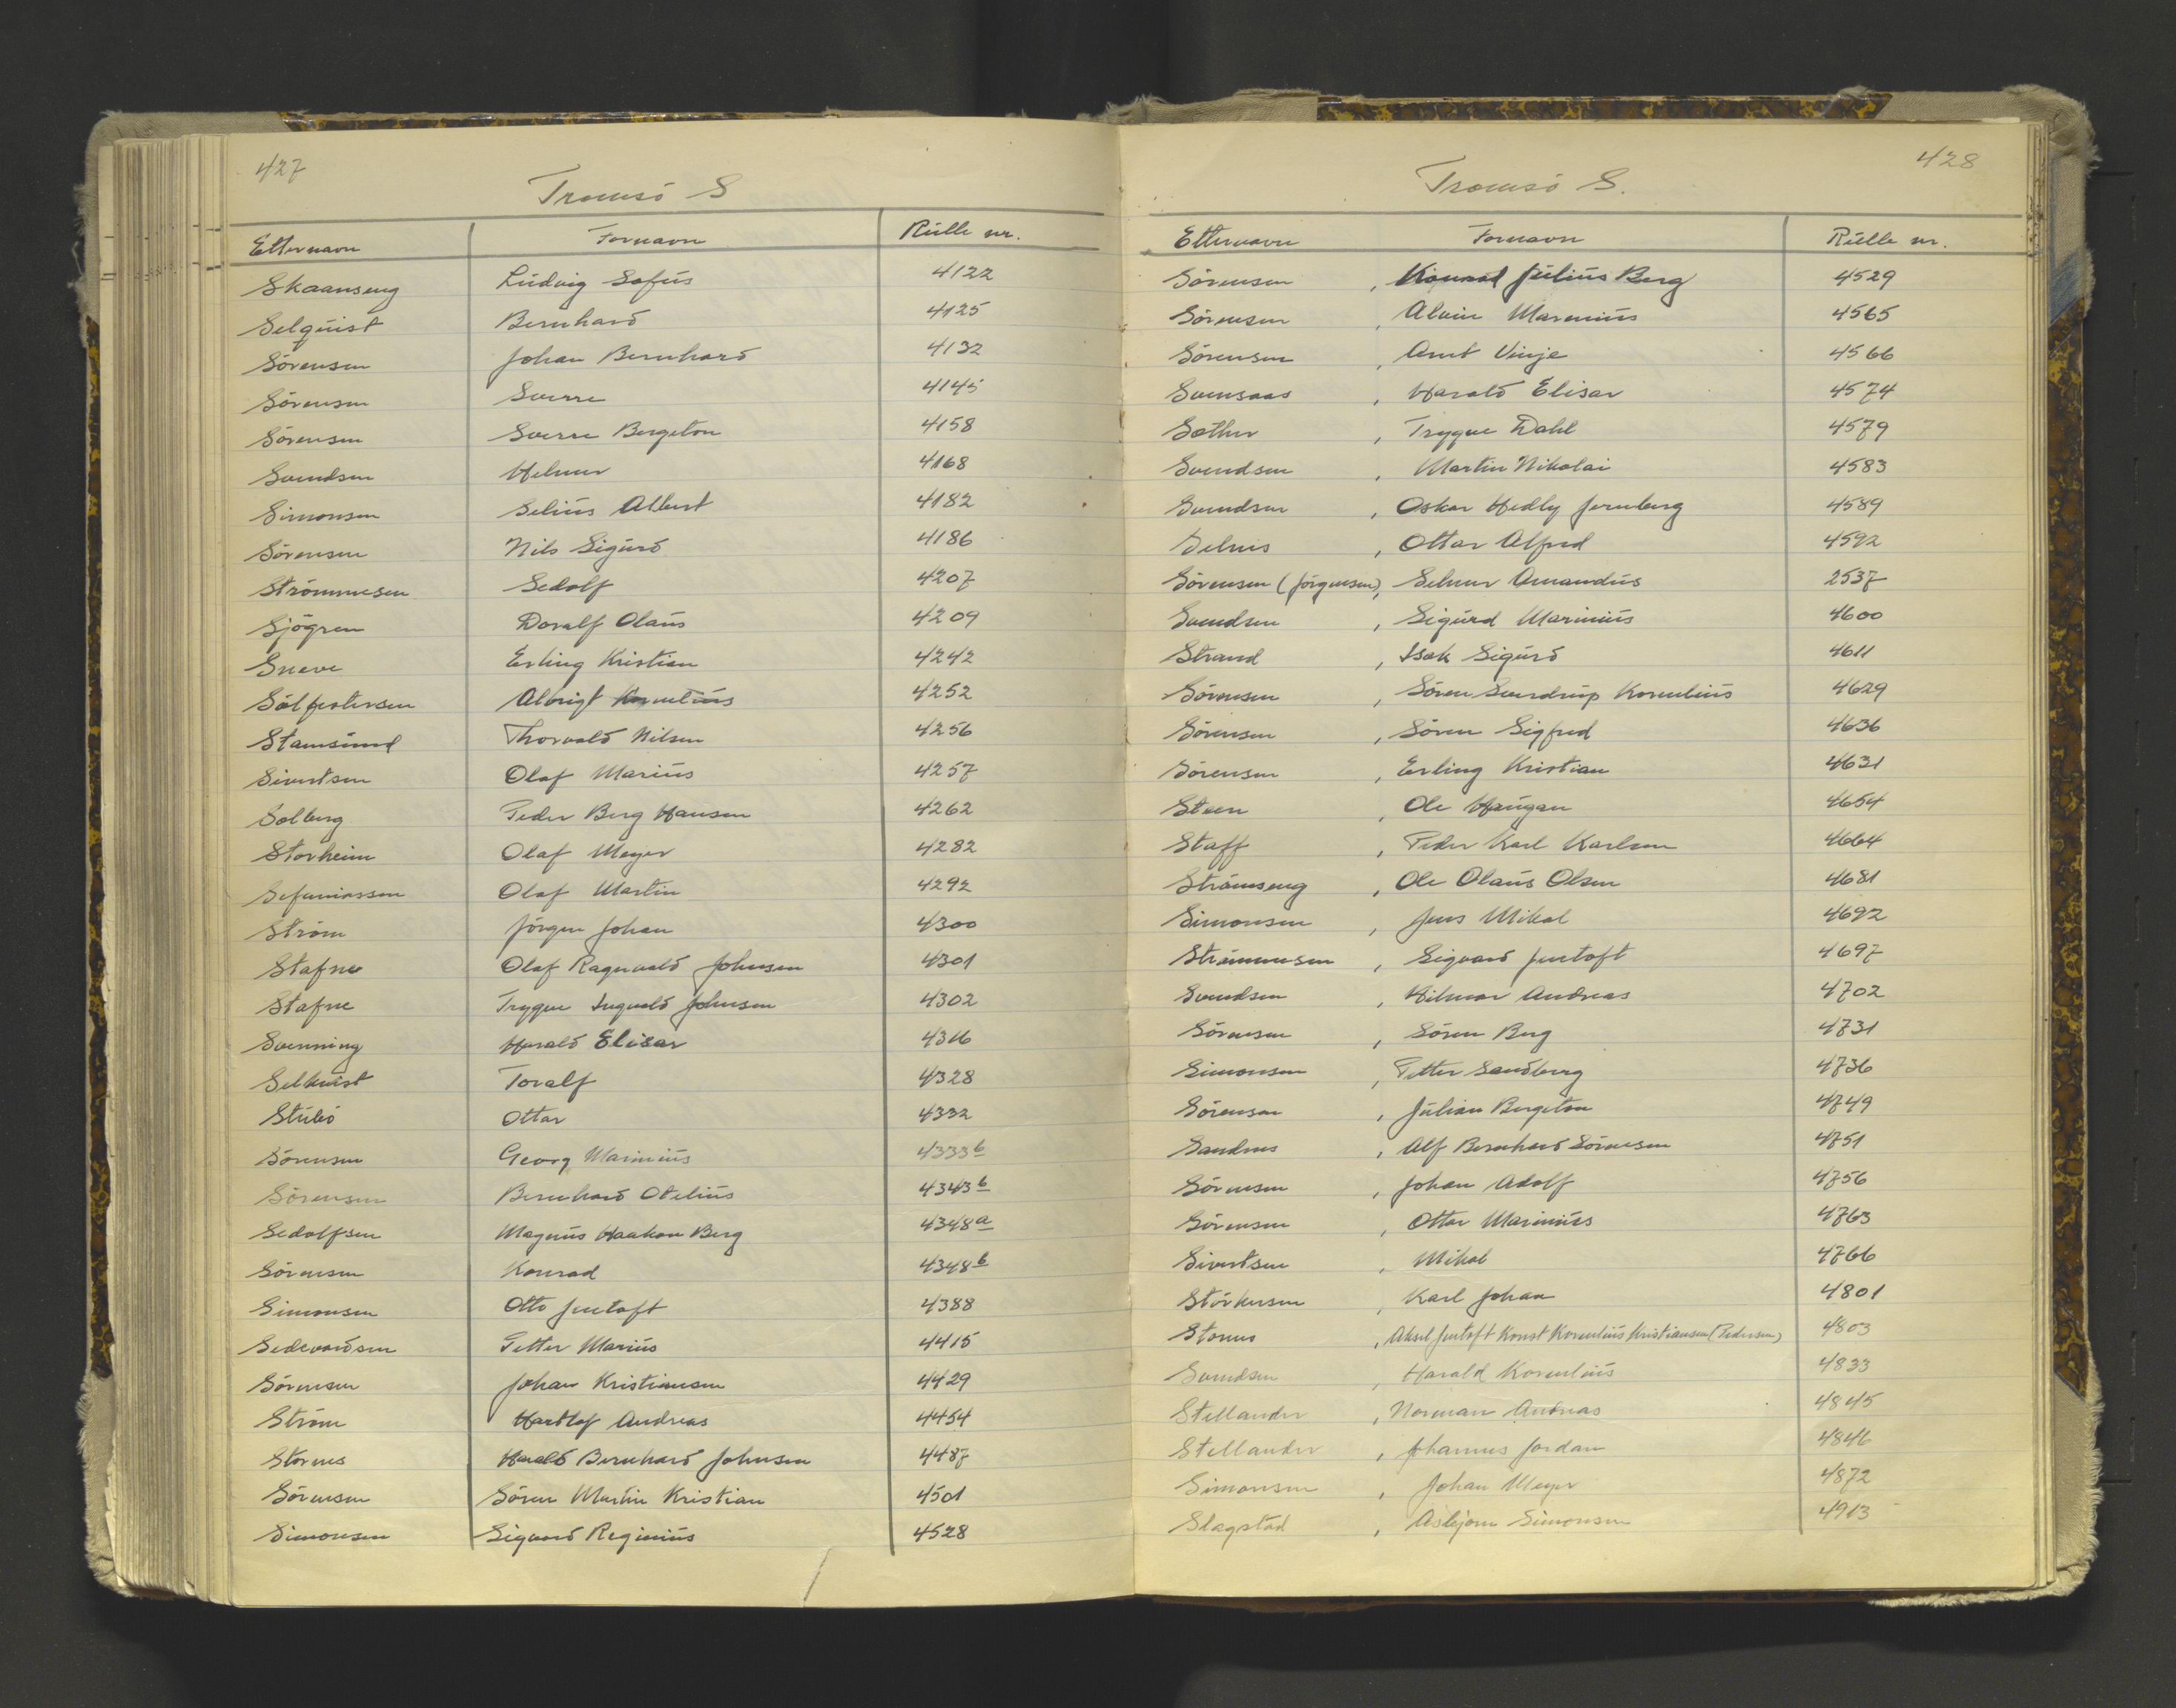 427
Tromsö S
Etternavn Fornavn Rulle nr.
Skaanseng Ludvig Sofus 4122
Selquist Bernhard 4125
Sörensen Johan Bernhard 4132
Sörensen Sverre 4145
Sörensen Sverre Bergeton 4158
Svendsen Helmer 4168
Simonsen Selius Albert 4182
Sörensen Nils Sigurd 4186
Strömmesen Sedolf 4207
Sjögren Doralf Olaus 4209
Sneve Erling Kristian 4242
Sölfestersen Albrigt Kornelius 4252
Stamsund Thorvald Nilsen 4256
Sivertsen Olaf Marius 4257
Solberg Peder Berg Hansen 4262
Storheim Olaf Meyer 4282
Sefaniassen Olaf Martin 4292
Ström Jörgen Johan 4300
Stafne Olaf Ragnvald Johnsen 4301
Stafne Trygve Ingvald Johnsen 4302
Svenning Harald Elisar 4316
Selkvist Toralf 4328
Stubö Ottar 4332
Sörensen Georg Marinius 4333b
Sörensen Bernhard Otelius 4343b
Sedolfsen Magnus Haakon Berg 4348a
Sörensen Konrad 4348b
Simonsen Otto Jentoft 4388
Sedevardsen Petter Marius 4415
Sörensen Johan Kristiansen 4429
Ström Hartlof Andreas 4454
Stornes Harald Bernhard Johnsen 4487
Sörensen Sören Martin Kristian 4501
Simonsen Sigvard Reginius 4528
428
Tromsö S.
Etternavn Fornavn Rulle nr.
Sörensen , Konrad Julius Berg 4529
Sörensen , Alvin Marenius 4565
Sörensen , Arnt Vinje 4566
Svensaas , Harald Elisar 4574
Sæther , Trygve Dahl 4579
Svendsen , Martin Nikolai 4583
Svendsen , Oskar Hedly Jernberg 4589
Selnes , Ottar Alfred 4592
Sörensen (Jörgensen), Selmer Amandus 2537
Svendsen , Sigurd Marinius 4600
Strand , Isak Sigurd 4611
Sörensen , Sören Sverdrup Kornelius 4629
Sörensen , Sören Sigfred 4636
Sörensen , Erling Kristian 4631
Steen , Ole Haugan 4654
Staff , Peder Karl Karlsen 4664
Strömseng , Ole Olaus Olsen 4681
Simonsen , Jens Mikal 4692
Strömmesen , Sigvard Jentoft 4697
Svendsen , Hilmar Andreas 4702
Sörensen , Sören Berg 4731
Simonsen , Petter Sandberg 4736
Sörensen , Julian Bergeton 4749
Sandnes , Alf Bernhard Sörnesen 4751
Sörensen , Johan Adolf 4756
Sörensen , Ottar Marinius 4763
Sivertsen , Mikal 4766
Störkersen , Karl Johan 4801
Stornes , Aksel Jentoft Konst Kornelius Kristiansen (Pedersen) 4803
Svendsen , Harald Kornelius 4833
Stellander , Norman Andreas 4845
Stellander , Johannes Jordan 4846
Simonsen , Johan Meyer 4872
Slagstad , Asbjörn Simonsen 4913